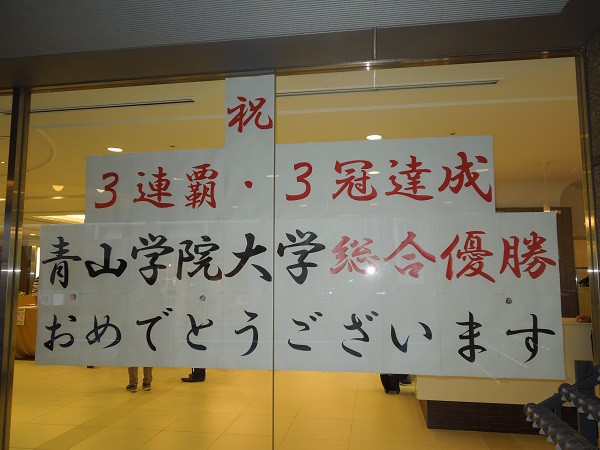 祝
3連覇・3冠達成
青山学院大学総合優勝
おめでとうございます